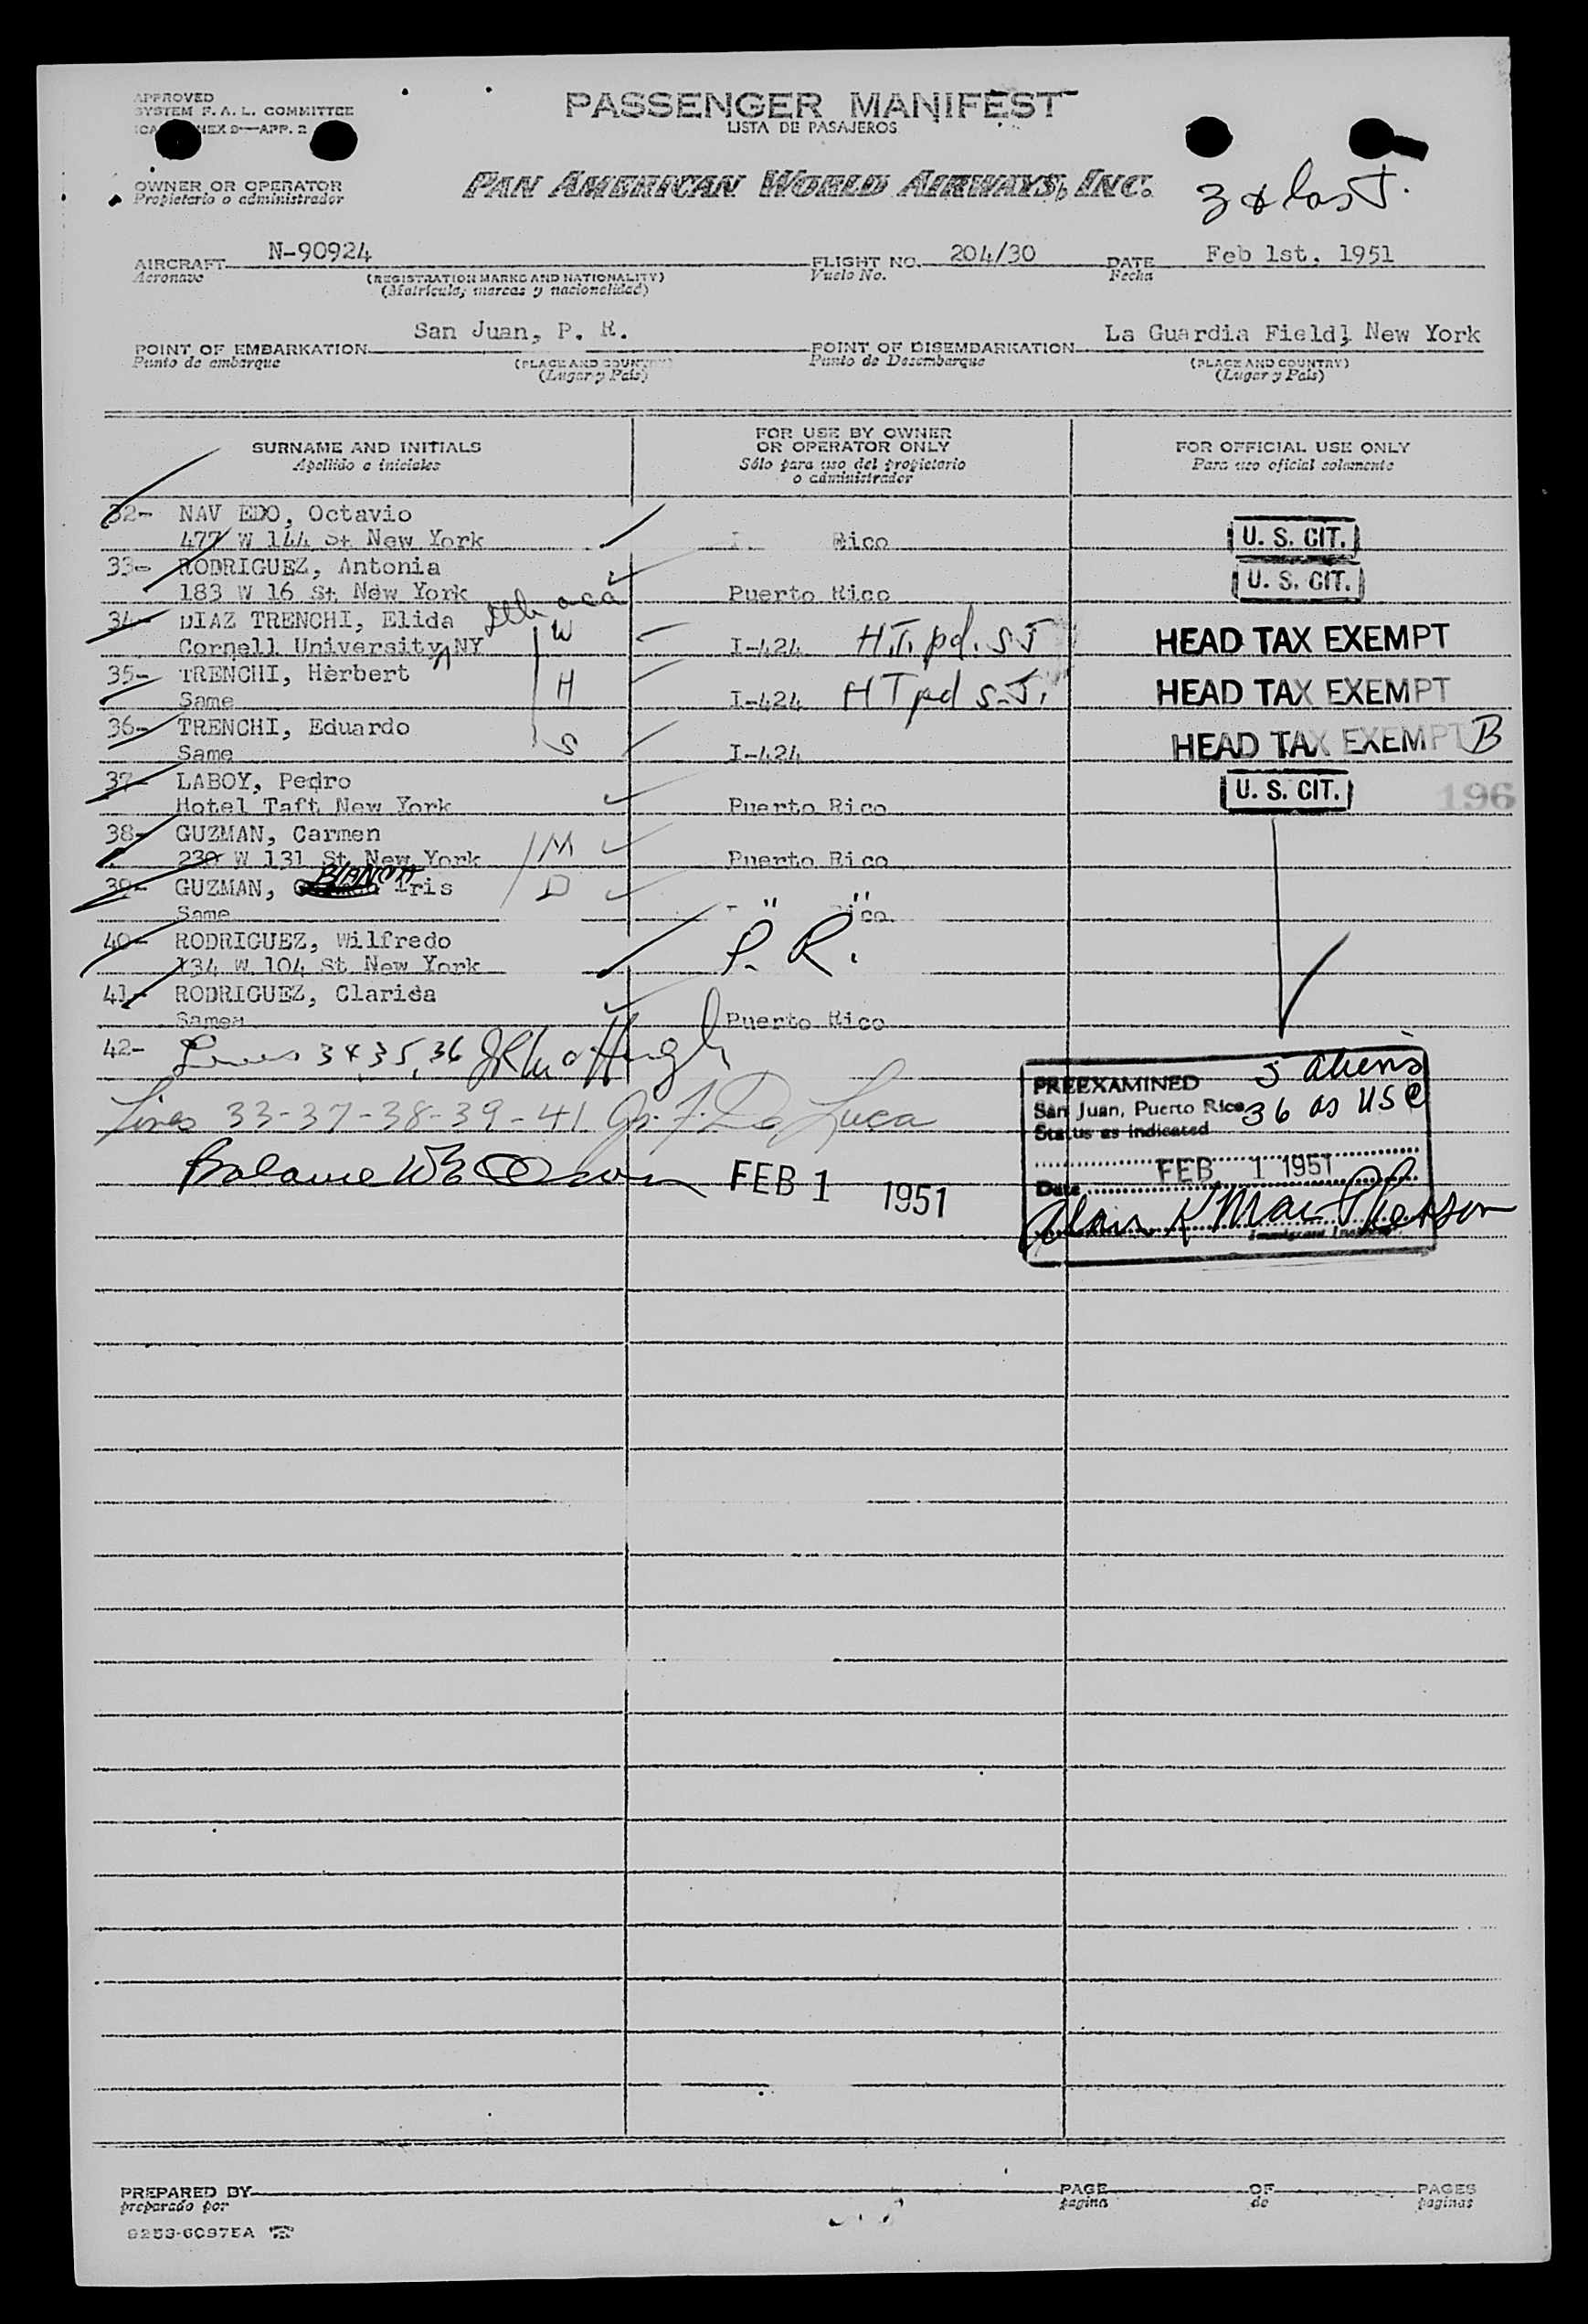 APPROVED
SYSTEM F. A. L. COMMITTEE
PASSENGER MANIFEST
LISTA DE PASAJEROS
OWNER OR OPERATOR
Propietario o administrador
PAN AMERICAN WORLD AIRWAYS, INC.
3 & last.
AIRCRAFT N-90924 FLIGHT NO. 204/30 DATE Feb 1st, 1951
Aeronave (REGISTRATION MARKS AND NATIONALITY) Vuelo No. Fecha
(Matricula, marcas y nacionalidad)
POINT OF EMBARKATION San Juan, P. R. POINT OF DISEMBARKATION La Guardia Field, New York
Punto de embarque (PLACE AND COUNTRY) Punto de Desembarque (PLACE AND COUNTRY)
(Lugar y País) (Lugar y País)
SURNAME AND INITIALS FOR USE BY OWNER OR OPERATOR ONLY FOR OFFICIAL USE ONLY
Apellido e iniciales Sólo para uso del propietario o administrador Para uso oficial solamente
32- NAV EDO, Octavio
477 W 144 St New York Rico U. S. CIT.
33- RODRIGUEZ, Antonia
183 W 16 St New York Puerto Rico U. S. CIT.
34- DIAZ TRENCHI, Elida W
Cornell University, NY I-424 H.T. pd. S J HEAD TAX EXEMPT
35- TRENCHI, Herbert H
Same I-424 HT pd S.J. HEAD TAX EXEMPT
36- TRENCHI, Eduardo S
Same I-424 HEAD TAX EXEMPT B
37- LABOY, Pedro
Hotel Taft New York Puerto Rico U. S. CIT. 196
38- GUZMAN, Carmen M
230 W 131 St New York Puerto Rico
39- GUZMAN, BIANCA Iris D
Same " " ico
40- RODRIGUEZ, Wilfredo
134 W 104 St New York P. R.
41- RODRIGUEZ, Clarisa
Same Puerto Rico
42- Lines 34, 35, 36
Lines 33-37-38-39-41 De Luca
Balance
FEB 1 1951
PREEXAMINED 5 aliens
San Juan, Puerto Rico 36 as USC
Status as indicated
FEB 1 1951
Date
Immigrant Inspector
PREPARED BY PAGE OF PAGES
preparado por pagina de paginas